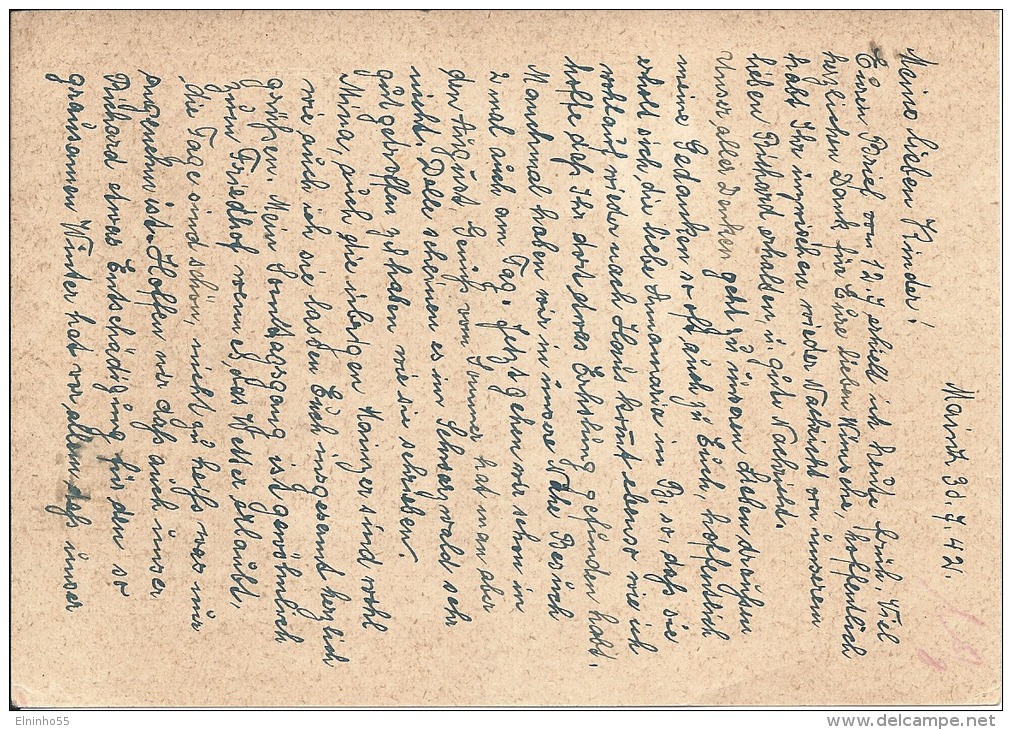 Mainz 30.7.42.
Meine lieben Kinder!
Euren Brief vom 12.7 erhielt ich heute früh. Viel
herzlichen Dank für Eure lieben Wünsche, hoffentlich
habt Ihr inzwischen wieder Nachricht von unserem
lieben Richard erhalten, u gute Nachricht.
Unser aller Denken geht zu unseren Lieben draußen
meine Gedanken so oft auch zu Euch, hoffentlich
erholt sich die liebe Annmarie in B. so, daß sie
wohlauf wieder nach Haus kommt ebenso wie ich
hoffe daß Ihr dort etwas Erholung gefunden habt.
Manchmal haben wir in unsere Nähe Besuch
2 mal auch am Tag. Jetzt gehen wir schon in
den August. Genuß vom Sommer hat man aber
nicht. Dolle scheinen es im Schwarzwald sehr
gut getroffen zu haben wie sie schrieben.
Mina, auch die übrigen Mainzer sind wohl
wie auch ich sie lassen Euch insgesamt herzlich
grüßen. Mein Sonntagsgang ist gewöhnlich
zum Friedhof wenn es das Wetter erlaubt,
die Tage sind schön, nicht zu heiß was mir
angenehm ist. Hoffen wir daß auch unser
Richard etwas Entschädigung für den so
grausamen Winter hat vor allem daß unser
Elninho55
www.delcampe.net